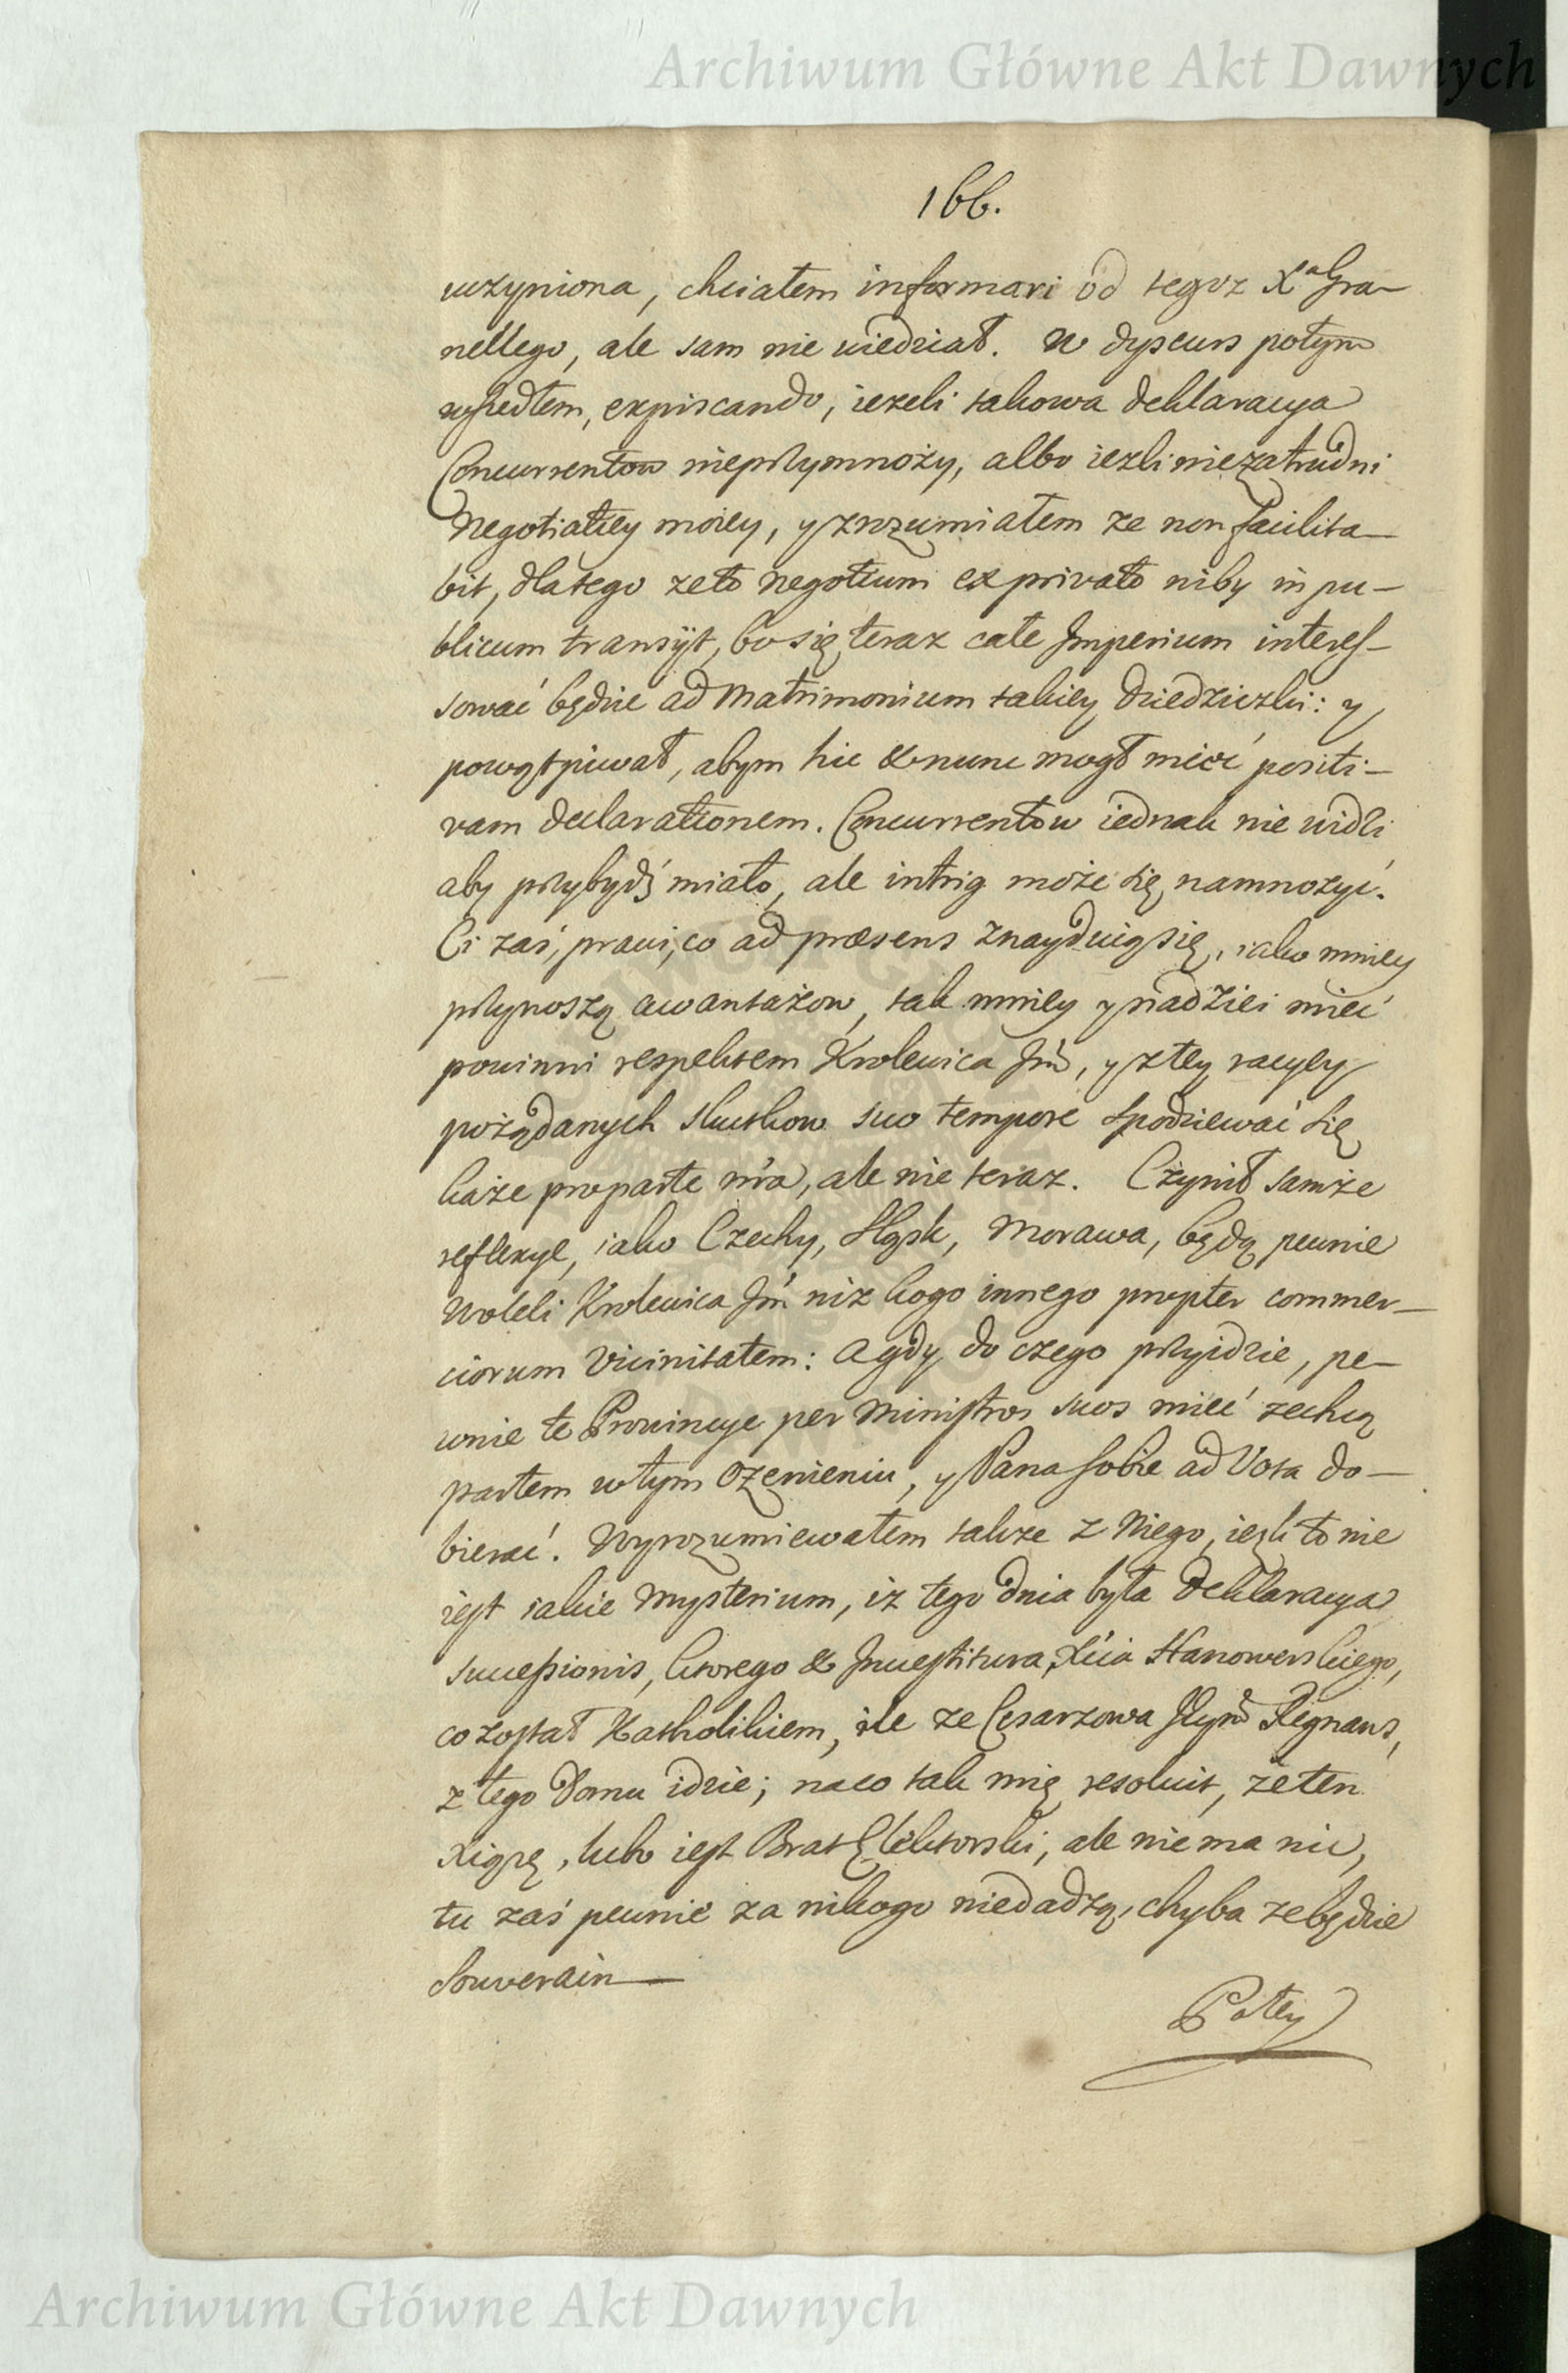 Archiwum Główne Akt Dawnych
166.
uczyniona, chciałem informari od tegoz Xa Gra-
nellego, ale sam nie wiedział. W dyscurs potym
wszedłem, expiscando, iezeli takowa deklaracya
Concurrentow nieprzymnoży, albo iezli niezatrudni
Negotiatiey moiey, y zrozumiałem ze non facilita-
bit, dlatego zeto negotium ex privato niby in pu-
blicum transijt, bo się teraz całe Imperium interes-
sować będzie ad Matrimonium takiey Dziedziczki: y
powątpiwał, abym hic & nunc mogł mieć positi-
vam declarationem. Concurrentow iednak nie widzi
aby przybydź miało, ale intrig może się namnożyć.
Ci zaś, prawi, co ad præsens znayduią się, iako mniey
przynoszą awantażow, tak mniey y nadziei mieć
powinni respektem Krolewica Jm̃, y z tey racyey
pożądanych skutkow suo tempore spodziewać się
każe pro parte nr̃a, ale nie teraz. Czynił samże
reflexye, iako Czechy, Sląsk, Morawa, będą pewnie
Woleli Krolewica Jm̃ niz kogo innego propter commer-
ciorum Vicinitatem: A gdy do czego przyidzie, pe-
wnie te Prowincye per Ministros suos mieć zechcą
partem wtym Ozenieniu, y Pana sobie ad Vota do-
bierać. Wyrozumiewałem także z Niego, iezli to nie
iest iakie Mysterium, iz tego dnia była Deklaracya
successionis, ktorego & Inuestitura, Xcia Hanowerskiego,
co został Katholikiem, ile ze Cesarzowa Regnans,
z tego Domu idzie; na co tak mię resoluit, ze ten
Xiąze, lubo iest Brat Elektorski, ale niema nic,
tu zaś pewnie za nikogo niedadzą, chyba ze będzie
Souverain
Potey
Archiwum Główne Akt Dawnych